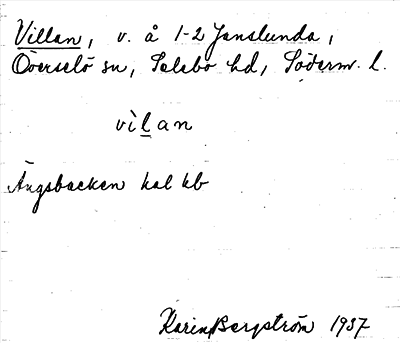 Villan, v. å 1-2 Janslunda,
Överselö sn, Selebo hd, Söderm. l.
vilan
Ängsbacken hal kb
Karin Bergström 1937